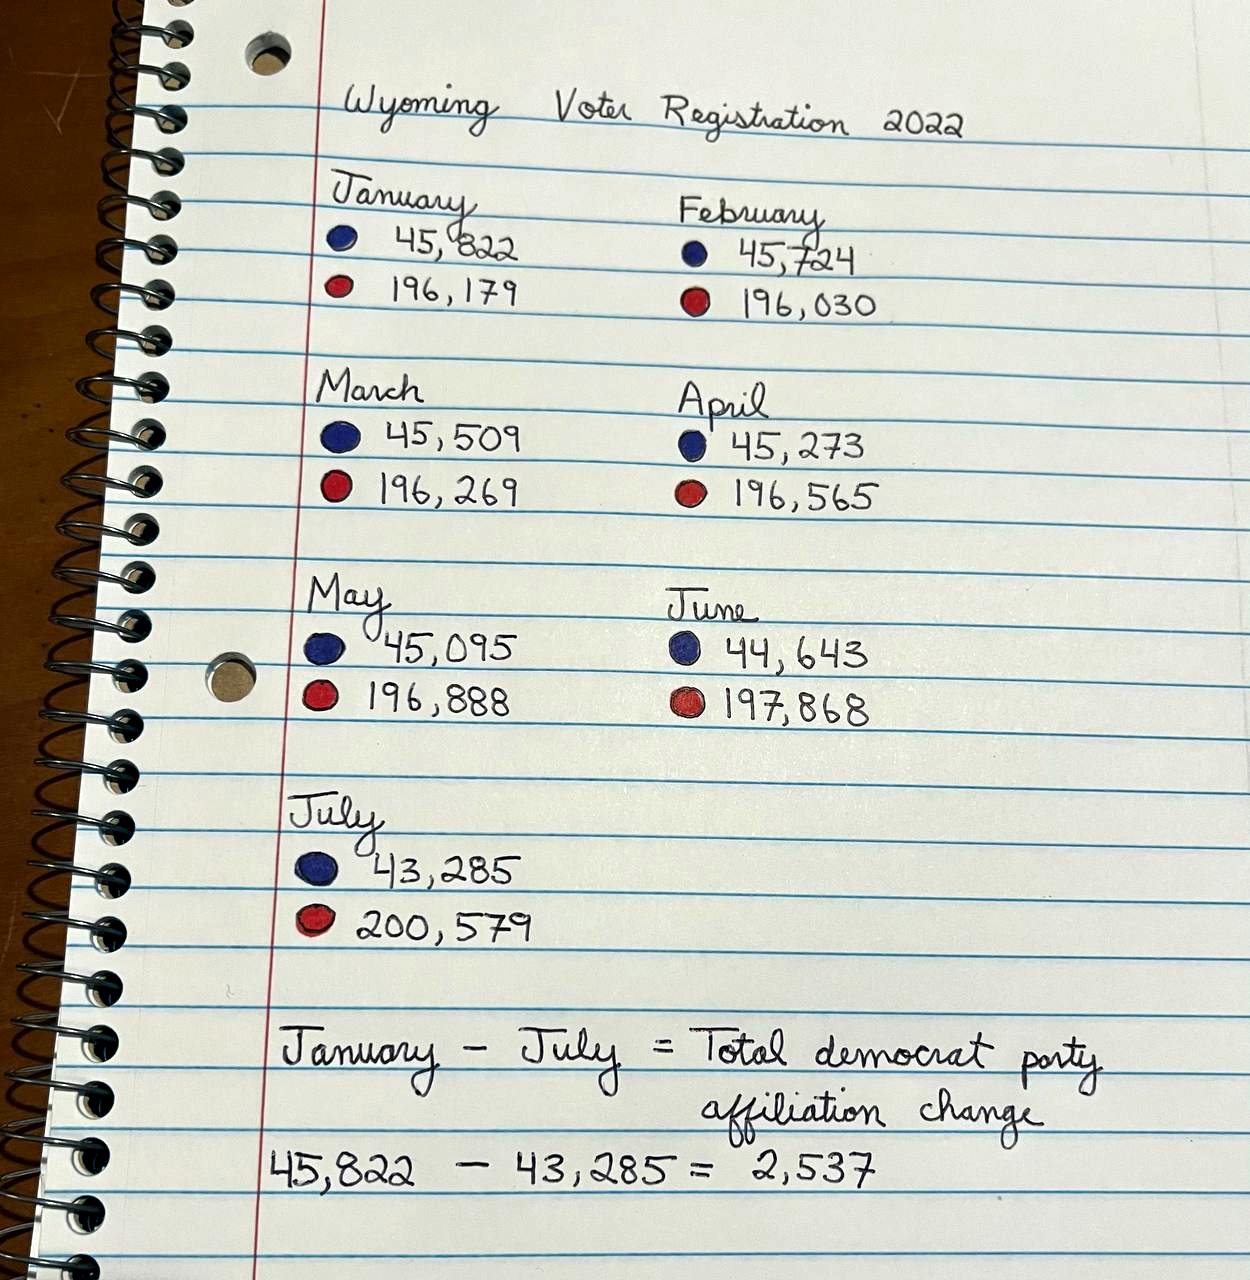 Wyoming Voter Registration 2022
January
45,822
196,179
February
45,724
196,030
March
45,509
196,269
April
45,273
196,565
May
45,095
196,888
June
44,643
197,868
July
43,285
200,579
January - July = Total democrat party
affiliation change
45,822 - 43,285 = 2,537